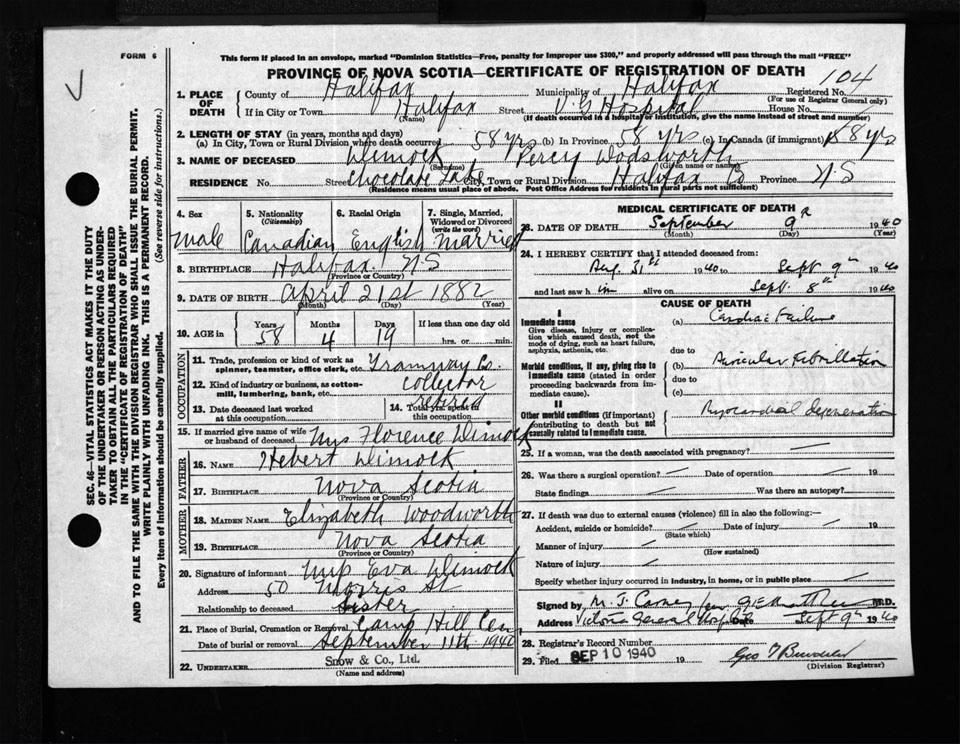 FORM 6
This form if placed in an envelope, marked "Dominion Statistics—Free, penalty for improper use $300," and properly addressed will pass through the mail "FREE"
PROVINCE OF NOVA SCOTIA—CERTIFICATE OF REGISTRATION OF DEATH
104
1. PLACE OF DEATH County of Halifax Municipality of Halifax Registered No.
(For use of Registrar General only)
If in City or Town Halifax Street V.G Hospital House No.
(Name) (If death occurred in a hospital or institution, give the name instead of street and number)
2. LENGTH OF STAY (in years, months and days)
(a) In City, Town or Rural Division where death occurred 58 yrs (b) In Province 58 yrs (c) In Canada (if immigrant) 58 yrs
3. NAME OF DECEASED Dimock Percy Wodsworth
(Surname) (Given name or names)
RESIDENCE No. Street Chocolate Lake City, Town or Rural Division Halifax Co Province N.S
(Residence means usual place of abode. Post Office Address for residents in rural parts not sufficient)
4. Sex Male
5. Nationality (Citizenship) Canadian
6. Racial Origin English
7. Single, Married, Widowed or Divorced (write the word) Married
8. BIRTHPLACE Halifax. N S
(Province or Country)
9. DATE OF BIRTH April 21st 1882
(Month) (Day) (Year)
10. AGE in Years 58 Months 4 Days 19 If less than one day old
hrs. or min.
OCCUPATION
11. Trade, profession or kind of work as spinner, teamster, office clerk, etc. Tramway Co.
12. Kind of industry or business, as cotton-mill, lumbering, bank, etc. collector
13. Date deceased last worked at this occupation
14. Total yrs. spent in this occupation retired
15. If married give name of wife or husband of deceased Mrs Florence Dimock
FATHER
16. NAME Hebert Dimock
17. BIRTHPLACE Nova Scotia
(Province or Country)
MOTHER
18. MAIDEN NAME Elizabeth Woodworth
19. BIRTHPLACE Nova Scotia
(Province or Country)
20. Signature of informant Mrs Eva Dimock
Address 50 Morris St
Relationship to deceased Sister
21. Place of Burial, Cremation or Removal Camp Hill Cem
Date of burial or removal September 11th 1940
22. UNDERTAKER Snow & Co., Ltd.
(Name and address)
MEDICAL CERTIFICATE OF DEATH
23. DATE OF DEATH September 9th 1940
(Month) (Day) (Year)
24. I HEREBY CERTIFY that I attended deceased from:
Aug. 31st 1940 to Sept 9th 1940
and last saw him alive on Sept. 8th 1940
CAUSE OF DEATH
I
Immediate cause
Give disease, injury or complication which caused death, not the mode of dying, such as heart failure, asphyxia, asthenia, etc.
(a) Cardiac Failure
due to
Morbid conditions, if any, giving rise to immediate cause (stated in order proceeding backwards from immediate cause).
(b) Auricular Fibrillation
due to
(c)
II
Other morbid conditions (if important) contributing to death but not causally related to immediate cause.
Myocardial degeneration
25. If a woman, was the death associated with pregnancy?
26. Was there a surgical operation? Date of operation 19
State findings Was there an autopsy?
27. If death was due to external causes (violence) fill in also the following:—
Accident, suicide or homicide? Date of injury 19
(State which)
Manner of injury
(How sustained)
Nature of injury
Specify whether injury occurred in industry, in home, or in public place
Signed by M. J. Carney M.D.
Address Victoria General Hospital Date Sept 9th 1940
28. Registrar's Record Number
29. Filed SEP 10 1940 19
(Division Registrar)
SEC. 46—VITAL STATISTICS ACT MAKES IT THE DUTY
OF THE UNDERTAKER OR PERSON ACTING AS UNDER-
TAKER TO OBTAIN ALL THE PARTICULARS REQUIRED
IN THE "CERTIFICATE OF REGISTRATION OF DEATH"
AND TO FILE THE SAME WITH THE DIVISION REGISTRAR WHO SHALL ISSUE THE BURIAL PERMIT.
WRITE PLAINLY WITH UNFADING INK. THIS IS A PERMANENT RECORD.
Every item of information should be carefully supplied. (See reverse side for instructions.)